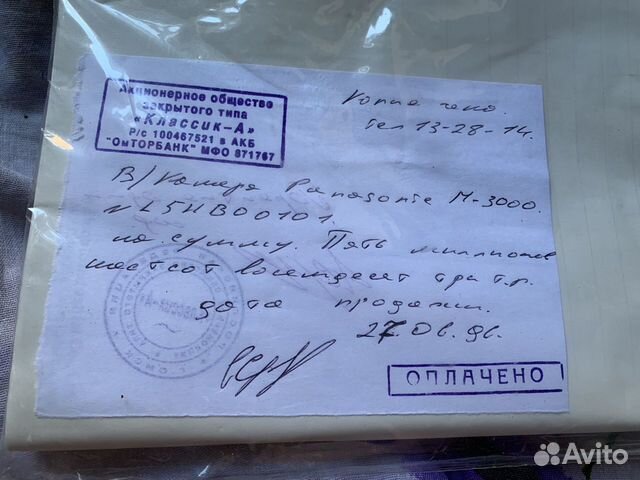 Акционерное общество
закрытого типа
«Классик-А»
Р/с 100467521 в АКБ
"ОмТОРБАНК" МФО 871767
Копия чека.
тел 13-28-14.
В/Камера Panasonic M-3000.
N L5HB00101.
на сумму. Пять миллионов
шестсот восемдесят три т.р.
дата продажи.
27.06.96.
ОПЛАЧЕНО
Avito